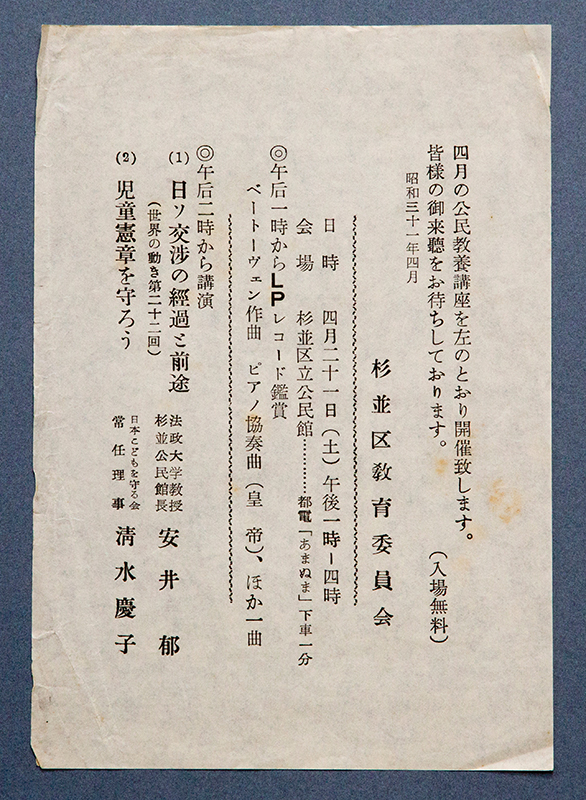 四月の公民教養講座を左のとおり開催致します。
皆様の御来聴をお待ちしております。　(入場無料)
昭和三十一年四月
杉並区教育委員会
日時　四月二十一日(土)午後一時ー四時
会場　杉並区立公民館…………都電「あまぬま」下車一分
◎午后一時からLPレコード鑑賞
ベートーヴェン作曲　ピアノ協奏曲(皇帝)、ほか一曲
◎午后二時から講演
(1)　日ソ交渉の經過と前途　法政大学教授
杉並公民館長　安井郁
(世界の動き第二十二回)
(2)　児童憲章を守ろう　日本こどもを守る会
常任理事　清水慶子